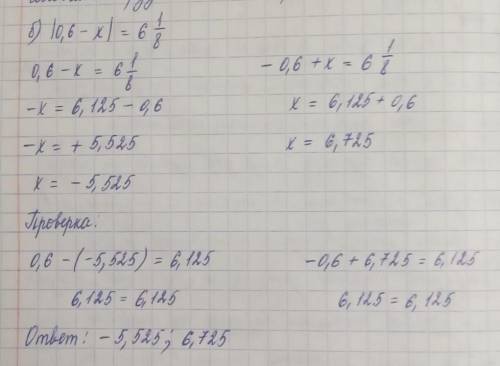 б) |0,6 - x| = 6 1/8
0,6 - x = 6 1/8
-x = 6,125 - 0,6
-x = + 5,525
x = - 5,525
- 0,6 + x = 6 1/8
x = 6,125 + 0,6
x = 6,725
Проверка:
0,6 - (-5,525) = 6,125
6,125 = 6,125
-0,6 + 6,725 = 6,125
6,125 = 6,125
Ответ: - 5,525; 6,725